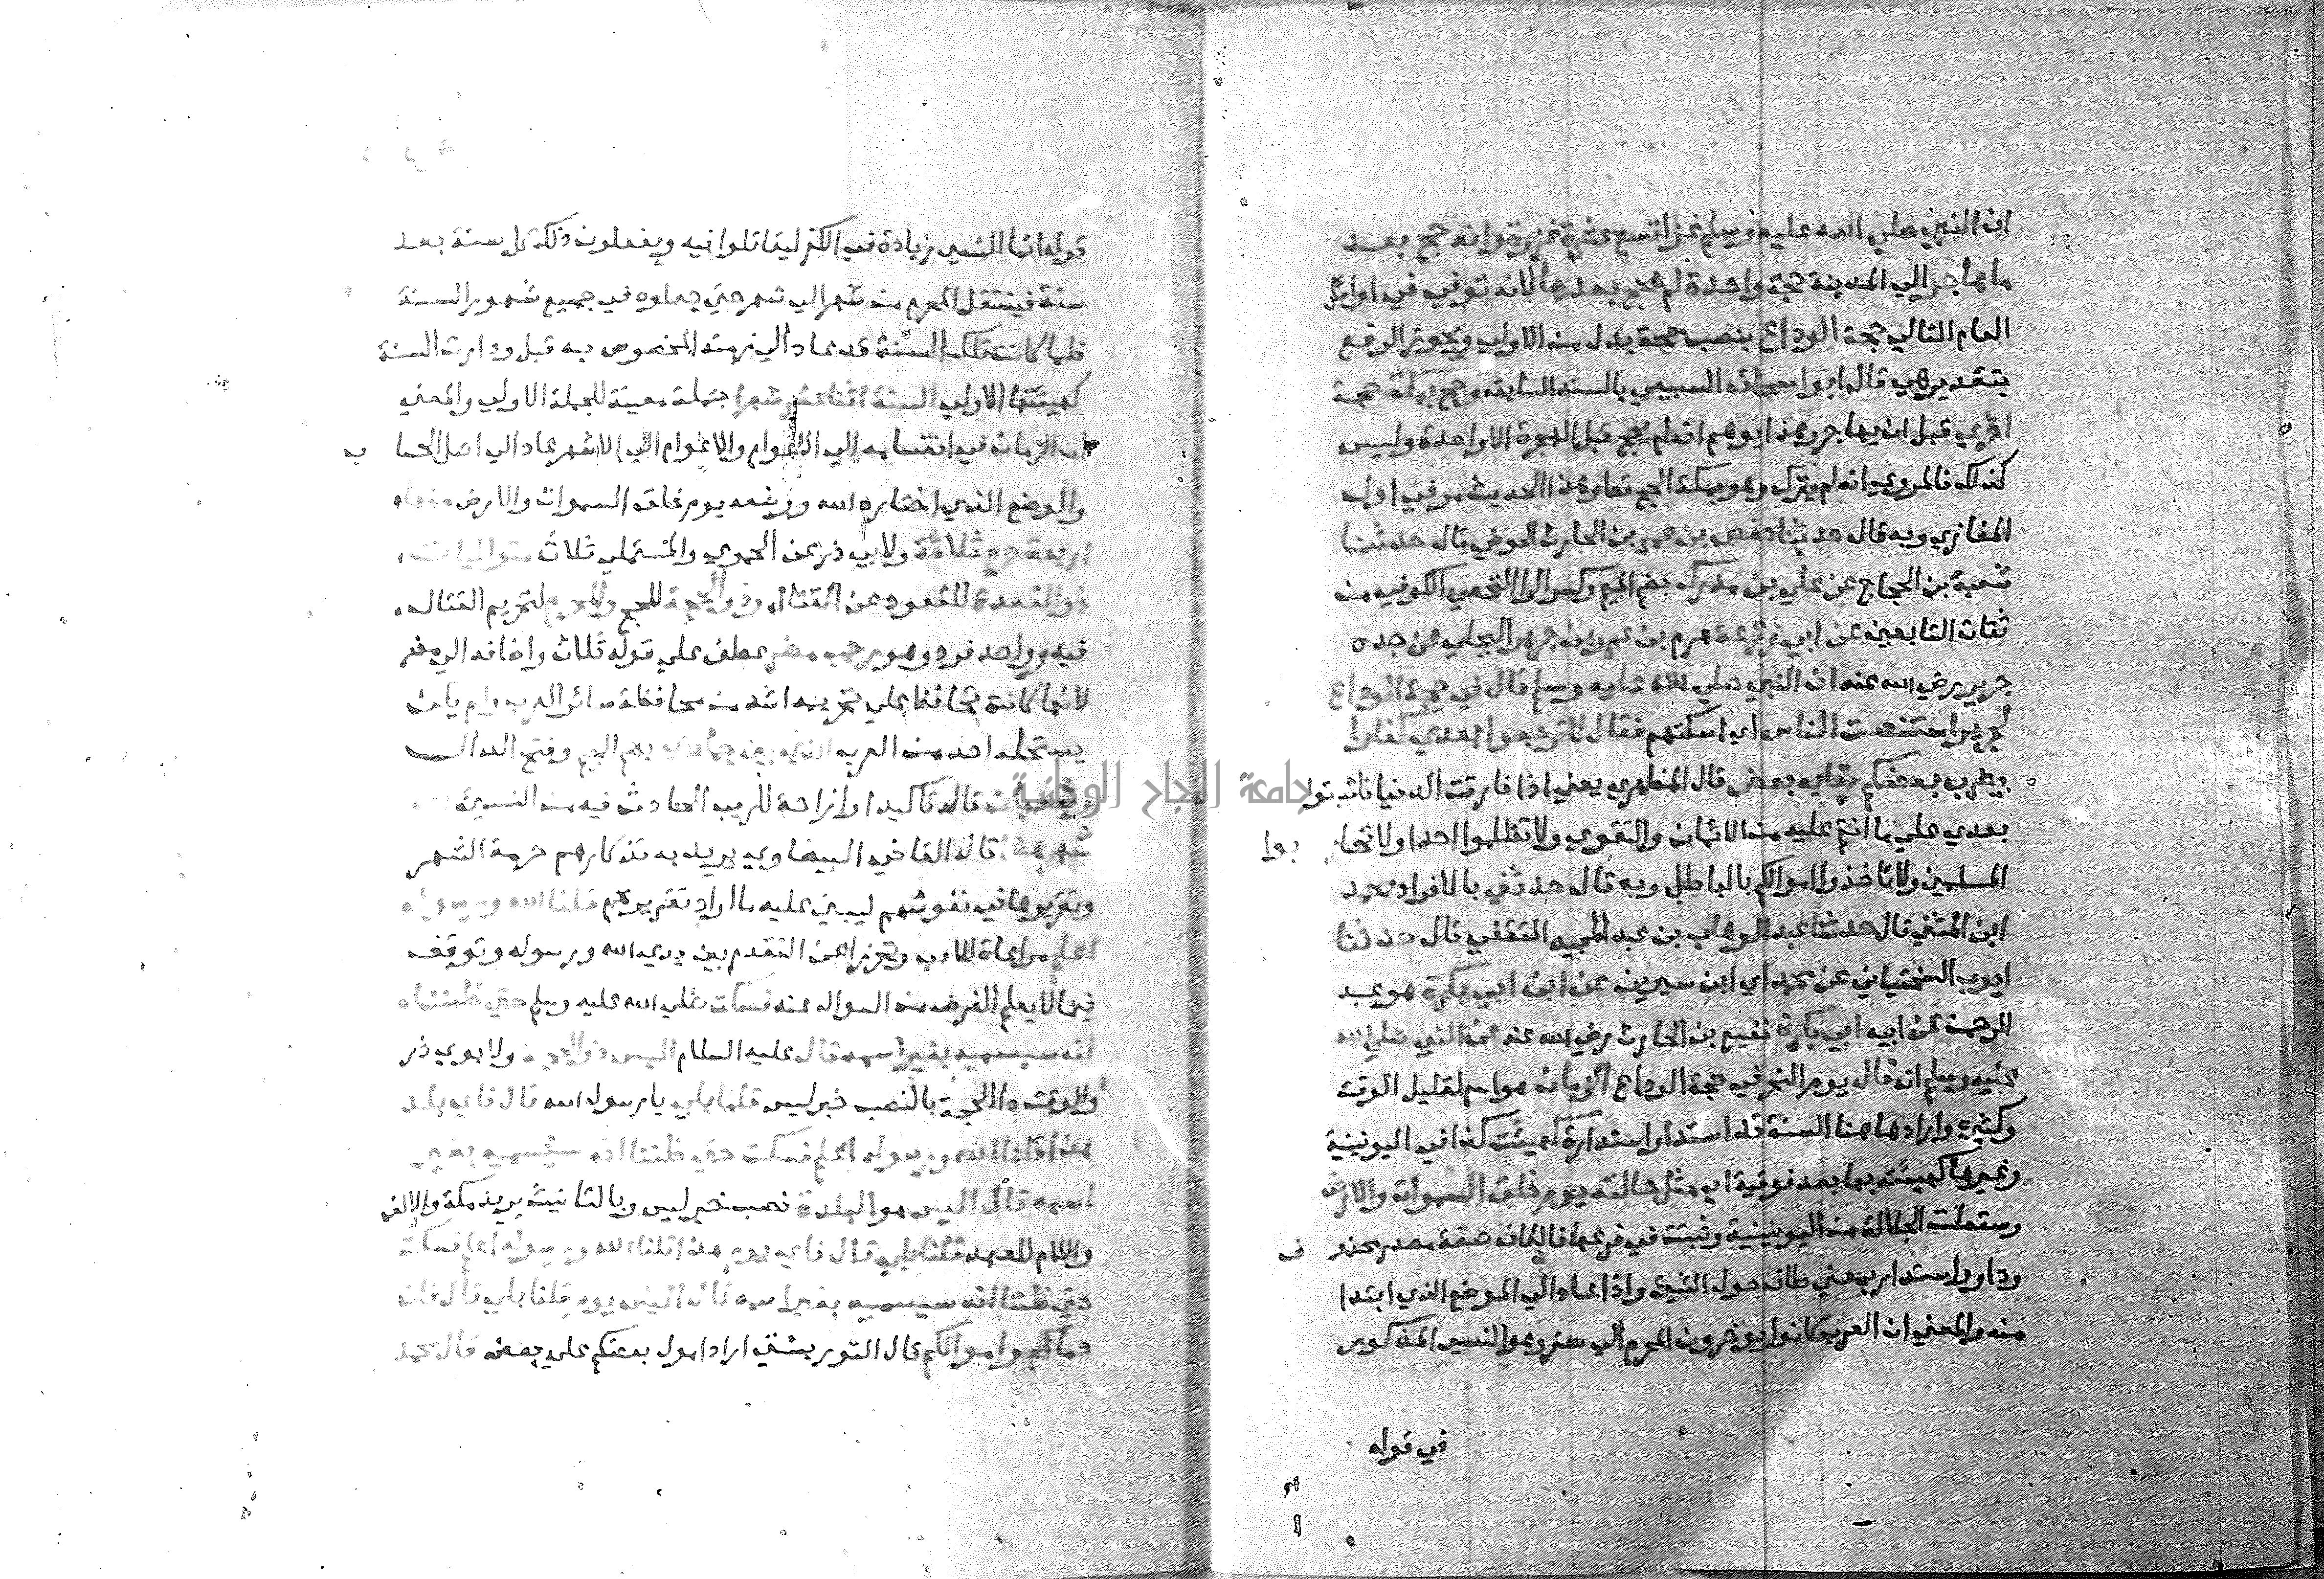 ان النبي صلي الله عليه وسلم غزا تسع عشرة غزوة وانه حج بعد
ما هاجر الي المدينة حجة واحدة لم يحج بعدها لانه توفي في اوائل
العام التالي حجة الوداع بنصب حجة بدل من الاولي ويجوز الرفع
بتقدير هي قال ابو اسحاق السبيعي بالسند السابق وحج بمكة حجة
اخري قبل ان يهاجر وهذا يوهم انه لم يحج قبل الهجرة الا واحدة وليس
كذلك فالمروي انه لم يترك وهو بمكة الحج قط وهذا الحديث مر في اول
المغازي وبه قال حدثنا حفص بن عمر بن الحارث الحوضي قال حدثنا
شعبة بن الحجاج عن علي بن مدرك بضم الميم وكسر الرا النخعي الكوفي من
ثقات التابعين عن ابي زرعة هرم بن عمرو بن جرير البجلي عن جده
جرير رضي الله عنه ان النبي صلي الله عليه وسلم قال في حجة الوداع
لجرير استنصت الناس اي اسكتهم فقال لا ترجعوا بعدي كفارا
يضرب بعضكم رقاب بعض قال المظهري يعني اذا فارقت الدنيا فاثبتوا
بعدي علي ما انتم عليه من الايمان والتقوي ولا تظلموا احدا ولا تحاربوا
المسلمين ولا تاخذوا اموالكم بالباطل وبه قال حدثني بالافراد محمد
ابن المثني قال حدثنا عبد الوهاب بن عبد المجيد الثقفي قال حدثنا
ايوب السختياني عن محمد اي ابن سيرين عن ابن ابي بكرة هو عبد
الرحمن عن ابيه ابي بكرة نفيع بن الحارث رضي الله عنه عن النبي صلي الله
عليه وسلم انه قال يوم النحر في حجة الوداع الزمان هو اسم لقليل الوقت
وكثيره واراد هاهنا السنة قد استدار استدارة كهيئت كذا في اليونينية
وغيرها كهيئته بها بعد فوقية اي مثل حالته يوم خلق السموات والارض
وسقطت الجلالة من اليونينية وثبتت في فرعها فالكاف صفة مصدر محذوف
ودار واستدار بمعني طاف حول الشيء واذا عاد الي الموضع الذي ابتدا
منه والمعني ان العرب كانوا يوخرون المحرم الي صفر وهو النسي المذكور
في قوله
قوله انما النسي زيادة في الكفر ليقاتلوا فيه ويفعلون ذلك كل سنة بعد
سنة فينتقل المحرم من شهر الي شهر حتي جعلوه في جميع شهور السنة
فلما كانت تلك السنة قد عاد الي زمنه المخصوص به قبل ودارت السنة
كهيئتها الاولي السنة اثنا عشر شهرا جملة مبينة للجملة الاولي والمعني
ان الزمان في انقسامه الي الاعوام والاعوام الي الاشهر عاد الي اصل الحساب
والوضع الذي اختاره الله ووضعه يوم خلق السموات والارض منها
اربعة حرم ثلاثة ولابي ذر عن الحموي والمستملي ثلاث متواليات
ذو القعدة للقعود عن القتال وذو الحجة للحج والمحرم لتحريم القتال
فيه وواحد فرد وهو رجب مضر عطف علي قوله ثلاث واضافه الي مضر
لانها كانت تحافظ علي تحريمه اشد من محافظة سائر العرب ولم يكن
يستحله احد من العرب الذي بين جمادي بضم الجيم وفتح الدال
وشعبان قاله تاكيدا وازاحة للريب الحادث فيه من النسيء
شهر هذا قال القاضي البيضاوي يريد به تذكارهم حرمة الشهر
وتقريرها في نفوسهم ليبني عليه ما اراد تقريره قلنا الله ورسوله
اعلم مراعاة للادب وتحرزا عن التقدم بين يدي الله ورسوله وتوقف
فيما لا يعلم الغرض من السوال عنه فسكت صلي الله عليه وسلم حتي ظننا
انه سيسميه بغير اسمه قال عليه السلام اليس ذو الحجة ولابوي ذر
والوقت ذا الحجة بالنصب خبر ليس قلنا بلي يا رسول الله قال فاي بلد
هذا قلنا الله ورسوله اعلم فسكت حتي ظننا انه سيسميه بغير
اسمه قال اليس هو البلدة نصب خبر ليس وبالتانيث يريد مكة والالف
واللام للعهد قلنا بلي قال فاي يوم هذا قلنا الله ورسوله اعلم فسكت
حتي ظننا انه سيسميه بغير اسمه قال اليس يوم قلنا بلي قال فان
دماءكم واموالكم قال التوربشتي اراد اموال بعضكم علي بعض قال محمد
جامعة النجاح الوطنية